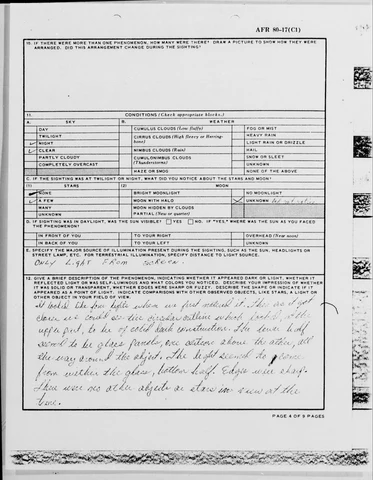 AFR 80-17(C1)
10. IF THERE WERE MORE THAN ONE PHENOMENON, HOW MANY WERE THERE? DRAW A PICTURE TO SHOW HOW THEY WERE
ARRANGED. DID THIS ARRANGEMENT CHANGE DURING THE SIGHTING?
11. CONDITIONS (Check appropriate blocks.)
A. SKY B. WEATHER
DAY CUMULUS CLOUDS (Low fluffy) FOG OR MIST
TWILIGHT CIRRUS CLOUDS (High fleecy or Herring-bone) HEAVY RAIN
NIGHT LIGHT RAIN OR DRIZZLE
CLEAR NIMBUS CLOUDS (Rain) HAIL
PARTLY CLOUDY CUMULONIMBUS CLOUDS (Thunderstorms) SNOW OR SLEET
COMPLETELY OVERCAST UNKNOWN
HAZE OR SMOG NONE OF THE ABOVE
C. IF THE SIGHTING WAS AT TWILIGHT OR NIGHT, WHAT DID YOU NOTICE ABOUT THE STARS AND MOON?
(1) STARS (2) MOON
NONE BRIGHT MOONLIGHT NO MOONLIGHT
A FEW MOON WITH HALO UNKNOWN
MANY MOON HIDDEN BY CLOUDS
UNKNOWN PARTIAL (New or quarter)
D. IF SIGHTING WAS IN DAYLIGHT, WAS THE SUN VISIBLE? YES NO. IF "YES," WHERE WAS THE SUN AS YOU FACED
THE PHENOMENON?
IN FRONT OF YOU TO YOUR RIGHT OVERHEAD (Near noon)
IN BACK OF YOU TO YOUR LEFT UNKNOWN
E. SPECIFY THE MAJOR SOURCE OF ILLUMINATION PRESENT DURING THE SIGHTING, SUCH AS THE SUN, HEADLIGHTS OR
STREET LAMP, ETC. FOR TERRESTRIAL ILLUMINATION, SPECIFY DISTANCE TO LIGHT SOURCE.
Only light from
12. GIVE A BRIEF DESCRIPTION OF THE PHENOMENON, INDICATING WHETHER IT APPEARED DARK OR LIGHT, WHETHER IT
REFLECTED LIGHT OR WAS SELF-LUMINOUS AND WHAT COLORS YOU NOTICED. DESCRIBE YOUR IMPRESSION OF WHETHER
IT WAS SOLID OR TRANSPARENT, WHETHER EDGES WERE SHARP OR FUZZY. DESCRIBE THE SHAPE OR INDICATE IF IT
APPEARED AS A POINT OF LIGHT. INDICATE COMPARISONS WITH OTHER OBSERVED OBJECTS, LIKE STARS, A LIGHT OR
OTHER OBJECT IN YOUR FIELD OF VIEW.
It looked like light when we first noticed it.
we could see the circular outline which looked, the
upper part, to be of solid construction. The lower half
seemed to be glass panels, one section above the other, all
the way around the object. The light seemed to come
from within the glass, bottom half. Edges were sharp.
There were no other objects or stars in view at the
time.
PAGE 4 OF 9 PAGES